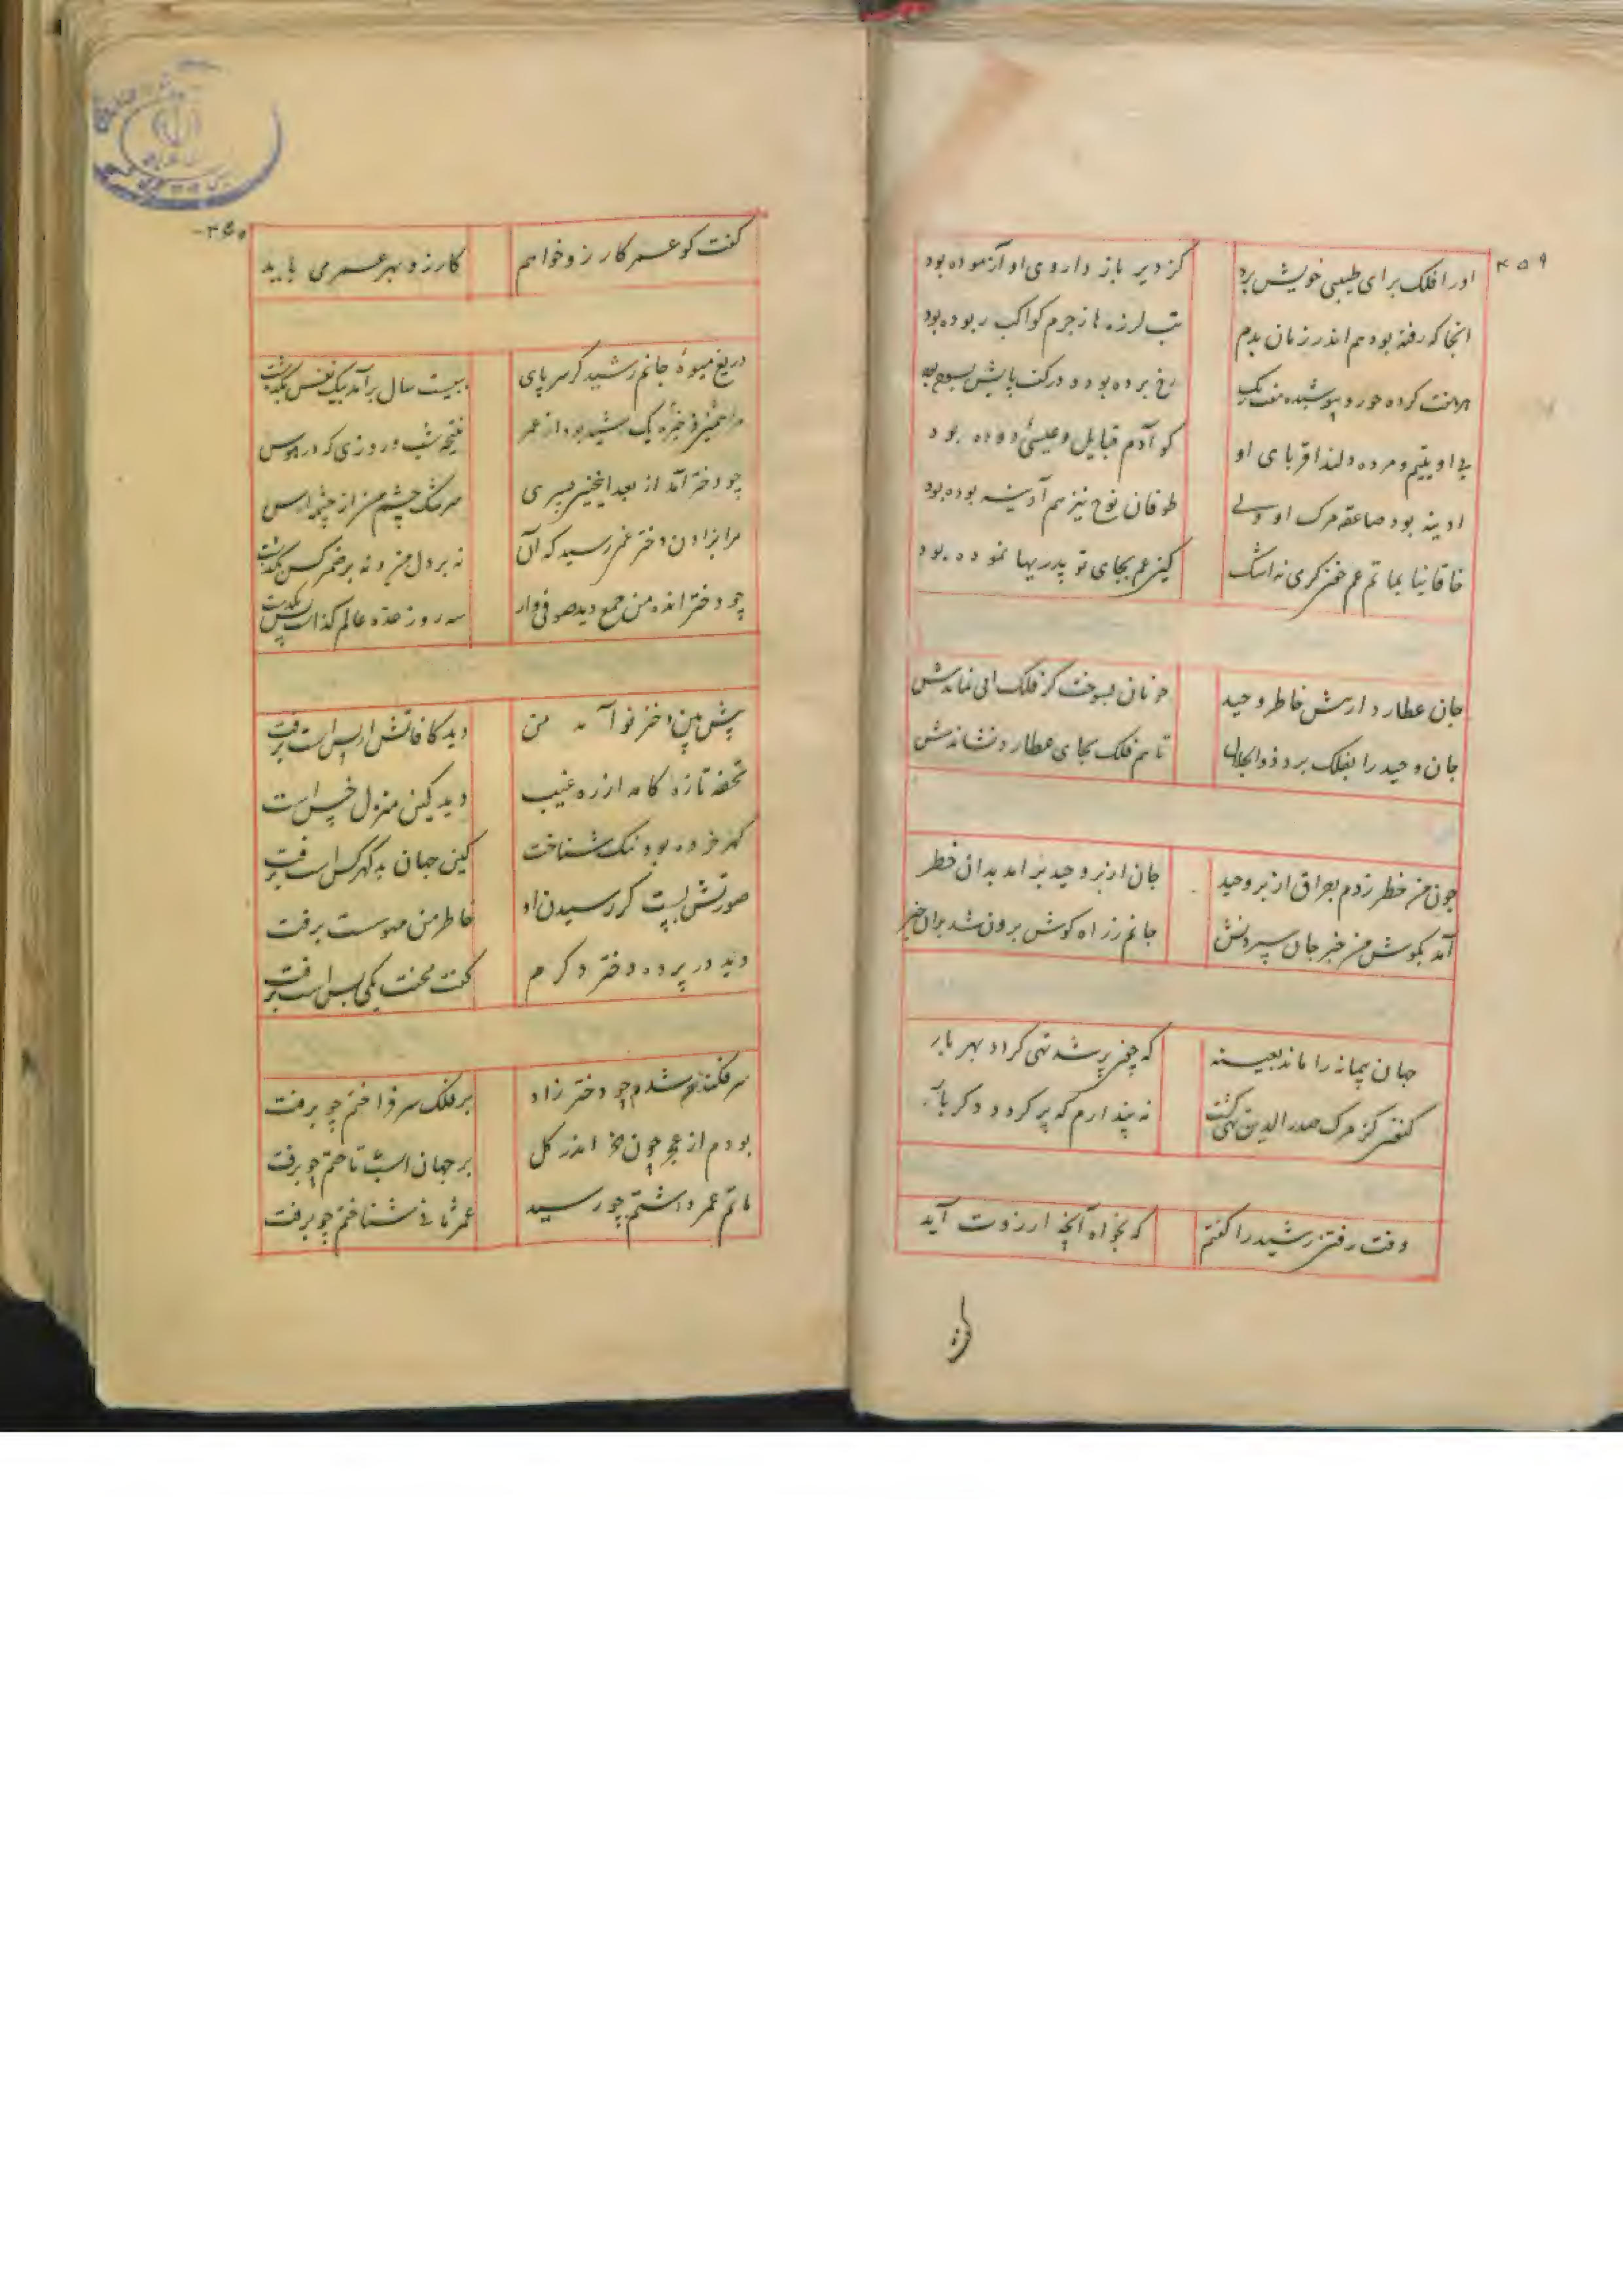 ۴۵۹
اورا فلک برای طبیبی خویش برد کز دیر باز داروی او آزموده بود
انجا که رفته بود هم اندر زمان بدم تب لرزه ها ز جرم کواکب ربوده بود
رخ برده بود و در کف پایش بسوده
بی او یتیم و مرده دلند اقربای او کو آدم قبایل و عیسی دوده بود
ادینه بود صاعقه مرک او ولی طوفان نوح نیز هم آدینه بوده بود
خاقانیا بماتم عم خون کری نه اشک کین عم بجای تو پدریها نموده بود
جان عطارد از تش خاطر وحید چونان بسوخت کز فلک ابی نماندش
جان وحید را بفلک برد ذوالجلال تا هم فلک بجای عطارد نشاندش
چون من خطر زدم بعراق از بر وحید جان از بر وحید بر امد بدان خطر
آمد بکوش من خبر جان سپردنش جانم ز راه کوش برون شد بران خبر
جهان پیمانه را ماند بعینه که چون پر شد تهی کردد بهر بار
کنون کز مرک صدرالدین تهی کشت نه پندارم که پر کردد دکر بار
وقت رفتن رشید را کفتم که بخواه آنچ ارزوت آید
۳۶۰
کفت کو عمر کارزو خواهم کارزو بهر عمر می باید
دریغ میوهٔ جانم رشید کز سر پای به بیست سال برآمد بیک نفس بکذشت
مرا ذخیره یک رشید بود از عمر نتیجه شب و روزی که در هوس
چو دختر آمد از بعد اینچنین پسری سرشک چشم من از چشمه ارس
مرا بزادن دختر غم رسید که آن نه بر دل من و نه بر ضمیر کس بکذشت
چو دختر انده من جمع دید صوفی وار سه روز عده عالم کذاشت
پیش بین دختر نو آمد من دید کافاتش از پس است برفت
تحفه تازه کامد از ره غیب دید کین منزل خس است
کهر خرد بود نیک شناخت کین جهان بد کهر کس است برفت
صورتش بست کز رسیدن او خاطر من مهوست برفت
دید در پرده دختر دکرم کفت محنت یکی بس است برفت
سرفکنده شدم چو دختر زاد بر فلک سر فراختم چو برفت
بودم از عجز چون خر اندر کل بر جهان اسب تاختم چو برفت
ماتم عمر داشتم چو رسید عمر ثانی شناختم چو برفت